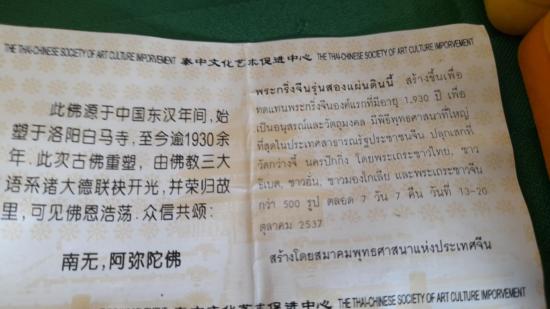 THE THAI-CHINESE SOCIETY OF ART CULTURE IMPORVEMENT 泰中文化艺术促进中心 THE THAI-CHINESE SOCIETY OF ART CULTURE IMPORVEMENT
此佛源于中国东汉年间,始
塑于洛阳白马寺,至今逾1930余
年.此次古佛重塑,由佛教三大
语系诸大德联袂开光,并荣归故
里,可见佛恩浩荡.众信共颂:
南无,阿弥陀佛
พระกริ่งจีนรุ่นสองแผ่นดินนี้ สร้างขึ้นเพื่อ
ทดแทนพระกริ่งจีนองค์แรกที่มีอายุ 1,930 ปี เพื่อ
เป็นอนุสรณ์และวัตถุมงคล มีพิธีพุทธศาสนาที่ใหญ่
ที่สุดในประเทศสาธารณรัฐประชาชนจีน ปลุกเสกที่
วัดกว่างจี้ นครปักกิ่ง โดยพระเถระชาวไทย, ชาว
ธิเบต, ชาวฮั่น, ชาวมองโกเลีย และพระเถระชาวจีน
กว่า 500 รูป ตลอด 7 วัน 7 คืน วันที่ 13-20
ตุลาคม 2537
สร้างโดยสมาคมพุทธศาสนาแห่งประเทศจีน
泰中文化艺术促进中心 THE THAI-CHINESE SOCIETY OF ART CULTURE IMPORVEMENT